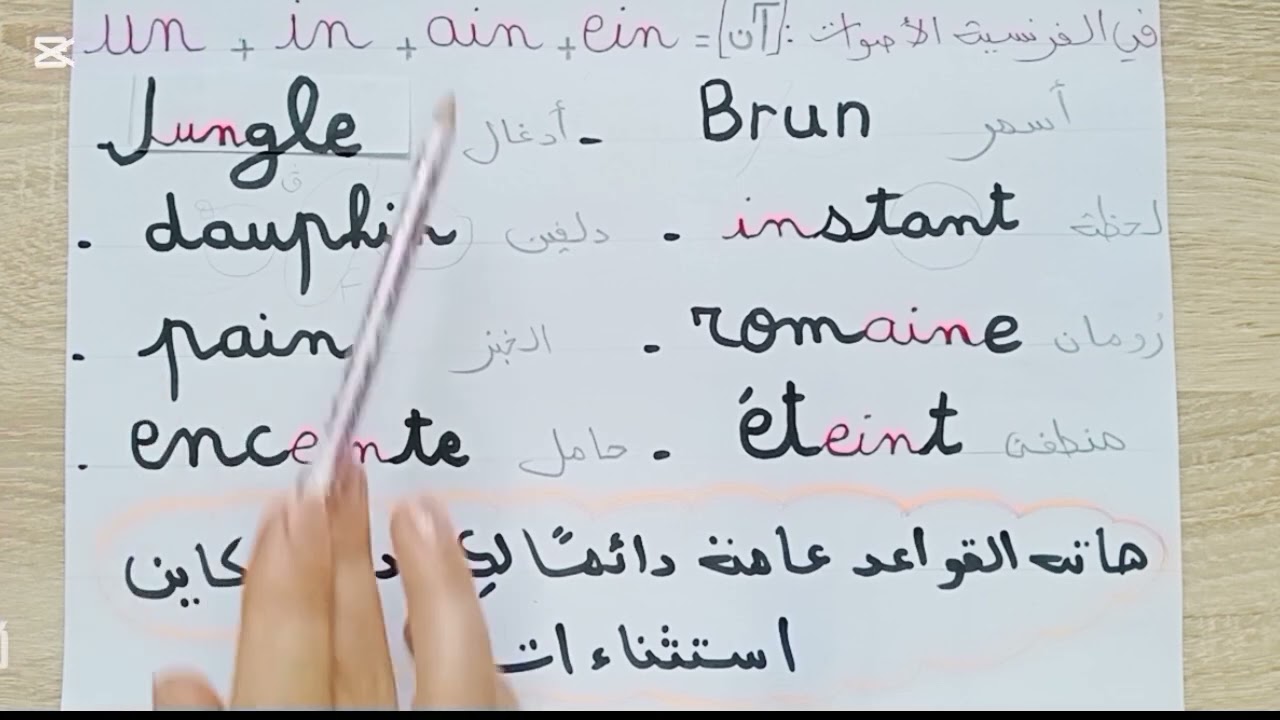 un + in + ain + ein = [آن] : في الفرنسية الأصوات
Jungle أدغال - Brun أسمر
. dauphin دلفين . instant لحظة
. pain الخبز . romaine رُومان
. enceinte حامل . éteint
هاته القواعد عامة دائمًا كاين
استثناءات